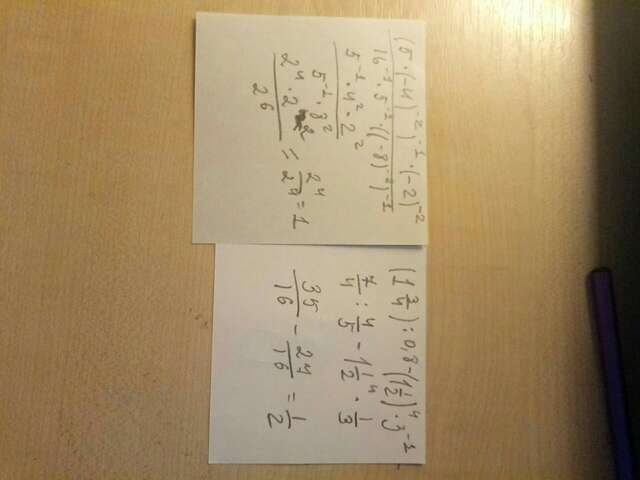 (5·(-4)⁻²)⁻¹·(-2)⁻²
16⁻¹·5⁻¹·((-8)⁻²)⁻¹
5⁻¹·4²·2²
5⁻¹·8²
2⁴·2²
2⁶
= 2⁴/2⁴ = 1
(1 3/4) : 0,8 - (1 1/2)⁴ · 3⁻¹
7/4 : 4/5 - 1 1/2⁴ · 1/3
35/16 - 27/16 = 1/2